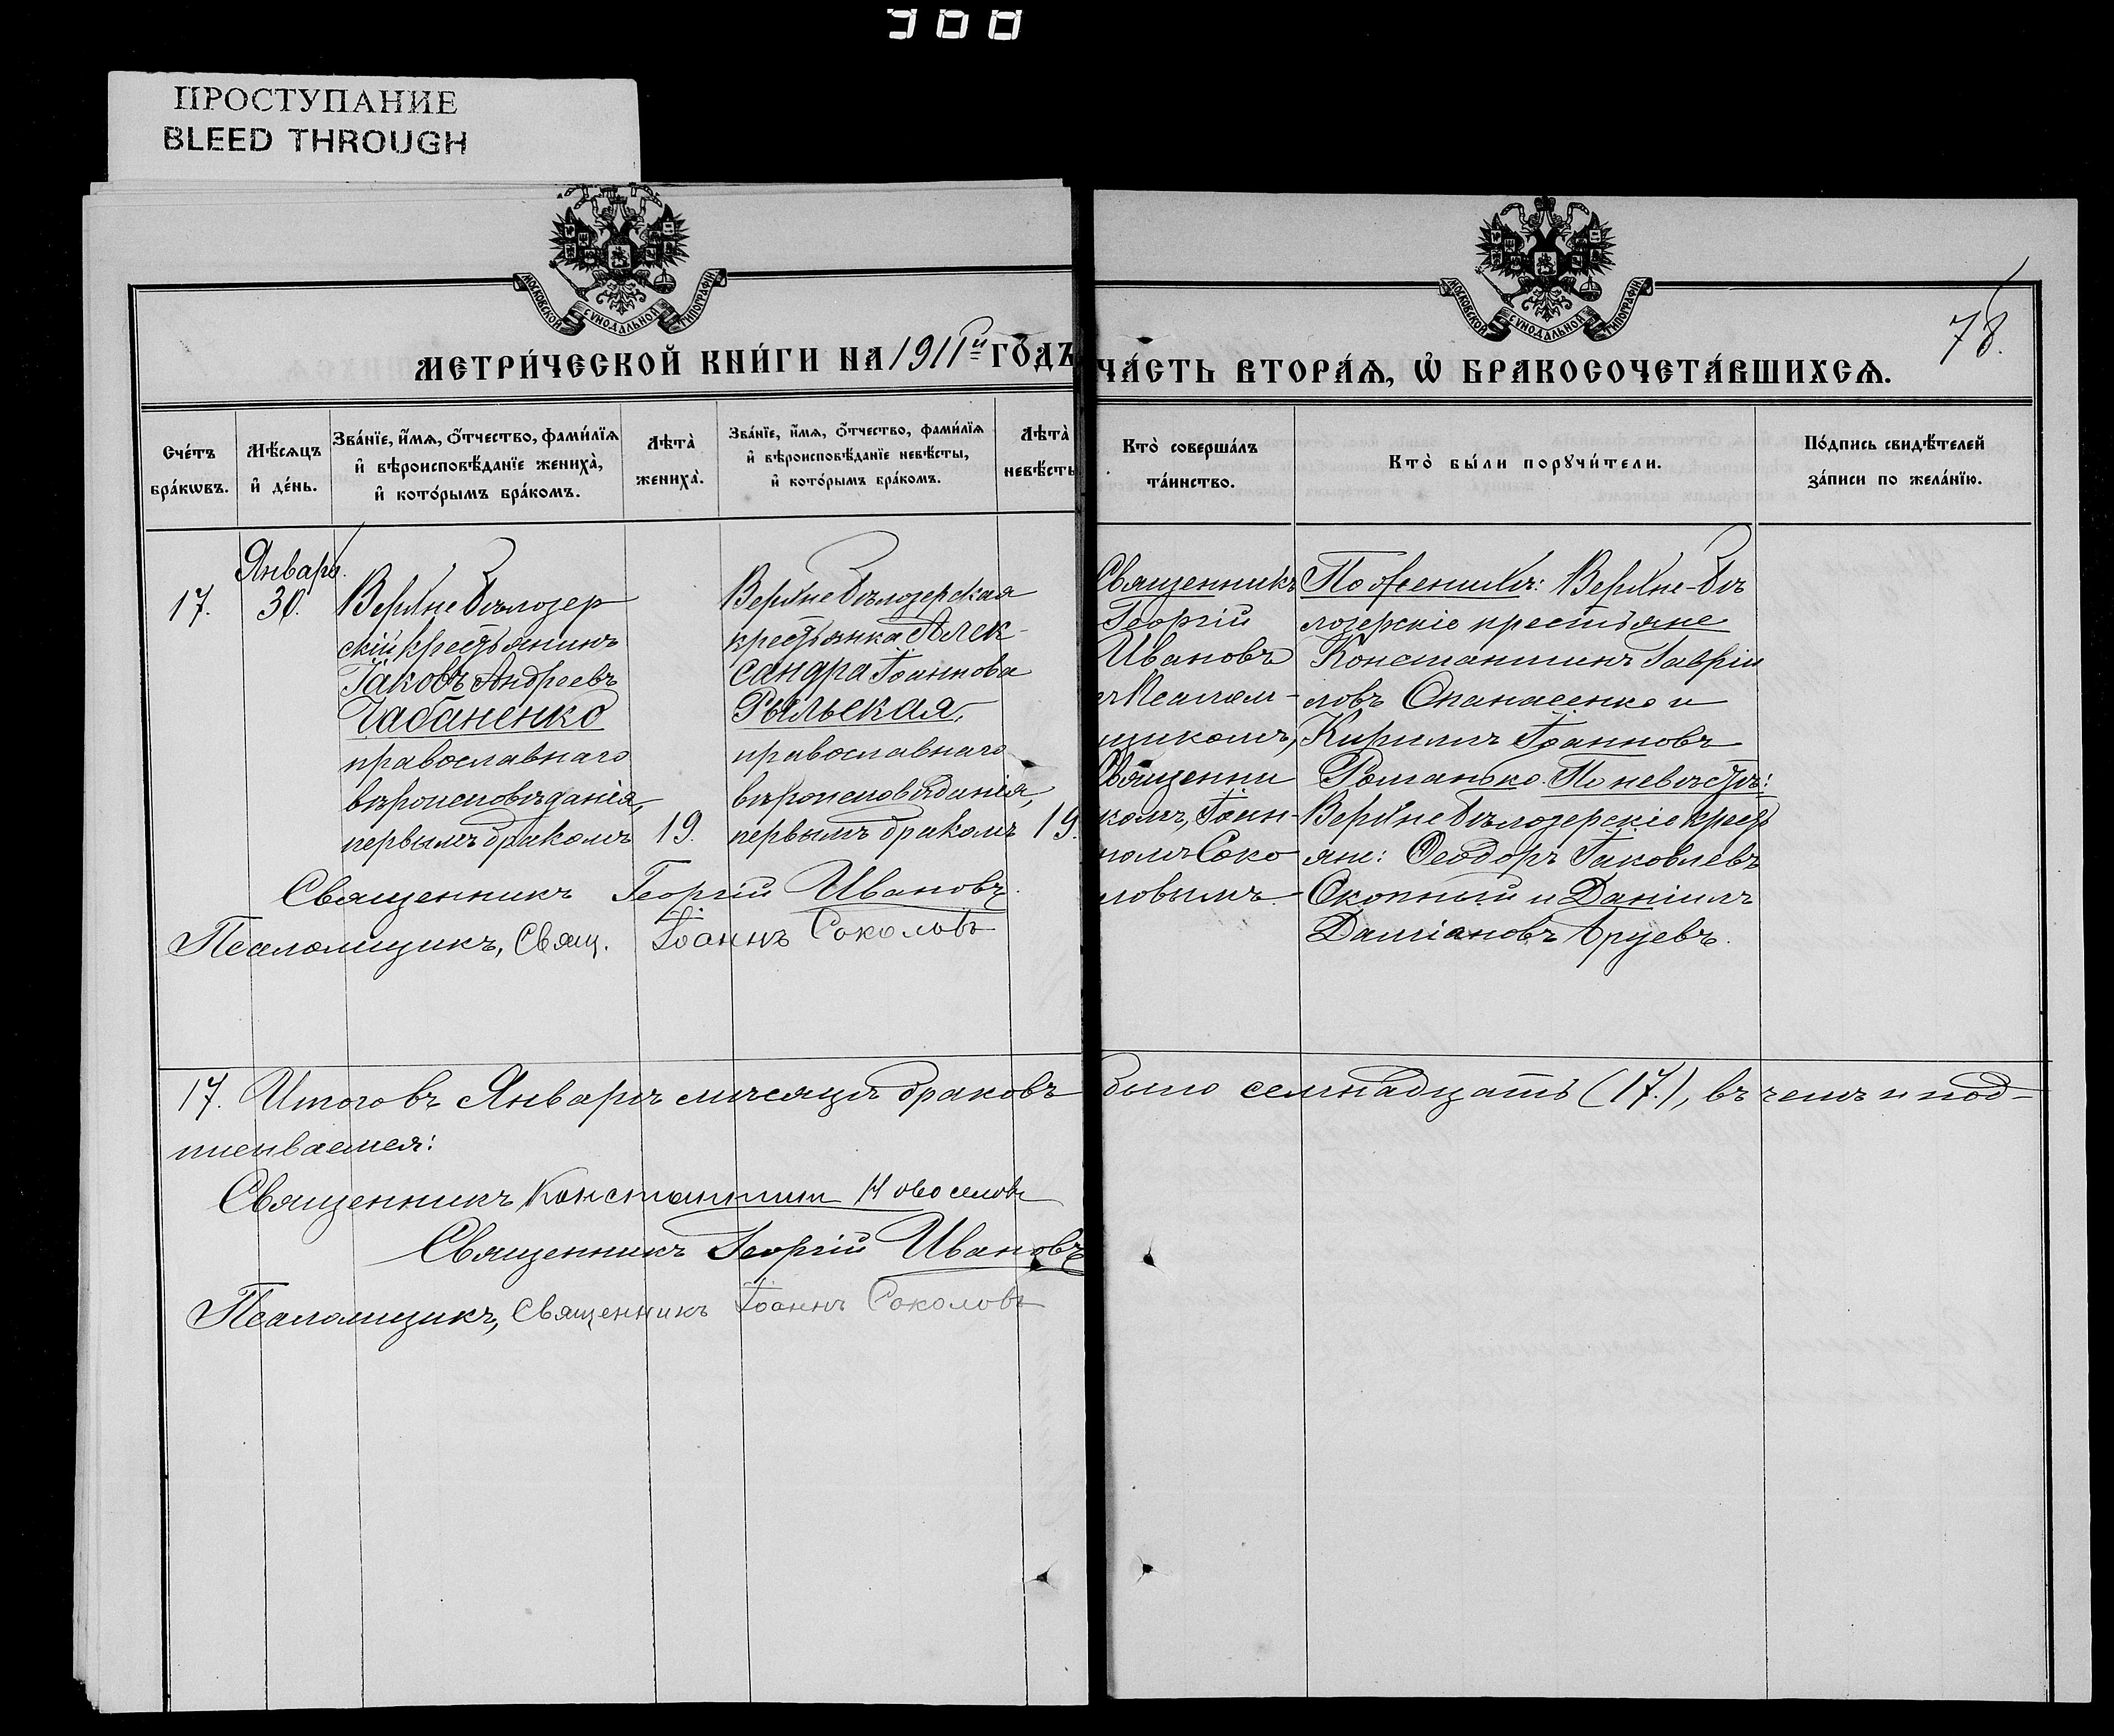 300
ПРОСТУПАНИЕ
BLEED THROUGH
МОСКОВСКОЙ СѴНОДАЛЬНОЙ ТИПОГРАФІИ
МОСКОВСКОЙ СѴНОДАЛЬНОЙ ТИПОГРАФІИ
78.
МЕТРИ́ЧЕСКОЙ КНИ́ГИ НА 1911й ГО́ДЪ
ЧА́СТЬ ВТОРА́Ѧ, Ѡ҆ БРАКОСОЧЕТА́ВШИХСѦ.
Сче́тъ бра́кѡвъ.
Мѣ́сѧцъ и҆ де́нь.
Зва́нїе, и҆́мѧ, ѻ҆́тчество, фами́лїѧ
и҆ вѣроисповѣ́данїе жениха̀,
и҆ кото́рымъ бра́комъ.
Лѣта̀ жениха̀.
Зва́нїе, и҆́мѧ, ѻ҆́тчество, фами́лїѧ
и҆ вѣроисповѣ́данїе невѣ́сты,
и҆ кото́рымъ бра́комъ.
Лѣта̀ невѣ́сты
Кто̀ соверша́лъ
та́инство.
Кто̀ бы́ли порꙋчи́тели.
По́дпись свидѣ́телей
за́писи по жела́нїю.
17.
Января.
30.
Верхнебѣлозер
скій крестьянинъ
Іаковъ Андреевъ
Чабаненко
православнаго
вѣроисповѣданія,
первымъ бракомъ
19.
Верхнебѣлозерская
крестьянка Алек-
сандра Іоаннова
Рыльская,
православнаго
вѣроисповѣданія,
первымъ бракомъ
19.
Священникъ
Георгій
Ивановъ
съ Псалом-
щикомъ,
Священни
комъ, Іоан-
номъ Соко
ловымъ
По женихѣ: Верхне-бѣ
лозерскіе крестьяне
Константинъ Гавріи
ловъ Опанасенко и
Кириллъ Іоанновъ
Романько. По невѣстѣ:
Верхнебѣлозерскіе крест
яне: Ѳеодоръ Іаковлевъ
Окопный и Даніилъ
Даміановъ Аруевъ.
Священникъ Георгій Ивановъ.
Псаломщикъ, Свящ. Іоаннъ Соколовъ
17. Итого въ Январѣ мѣсяцѣ браковъ было семнадцать (17.), въ чемъ и под-
писываемся:
Священникъ Константинъ Новоселовъ
Священникъ Георгій Ивановъ
Псаломщикъ, Священникъ Іоаннъ Соколовъ